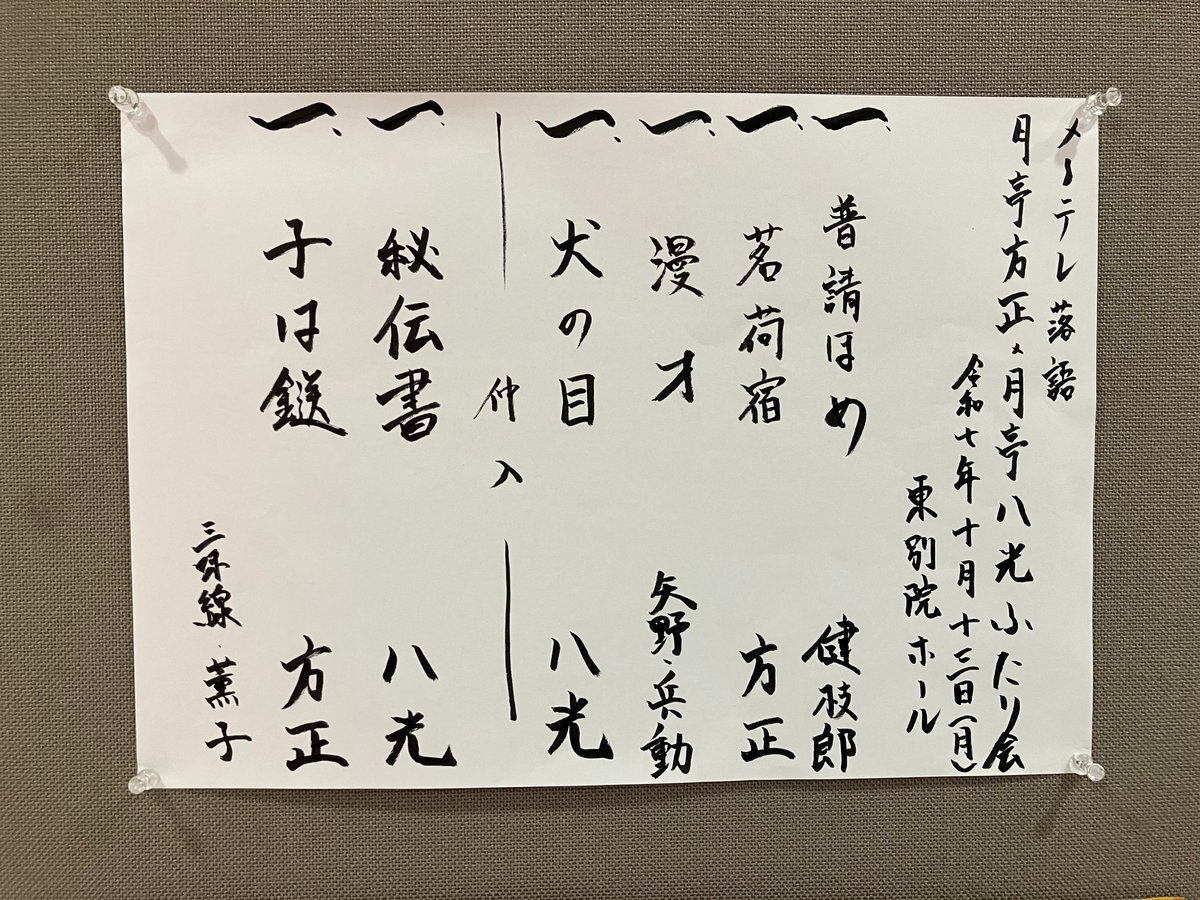 メ〜テレ落語
月亭方正×月亭八光ふたり会
令和七年十月十三日(月)
東別院ホール
一、普請ほめ 健枝郎
一、茗荷宿 方正
一、漫才 矢野・兵動
一、犬の目 八光
仲入
一、秘伝書 八光
一、子は鎹 方正
三味線・薫子